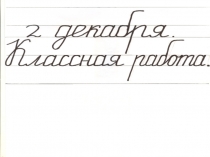 2 декабря.
Классная работа.